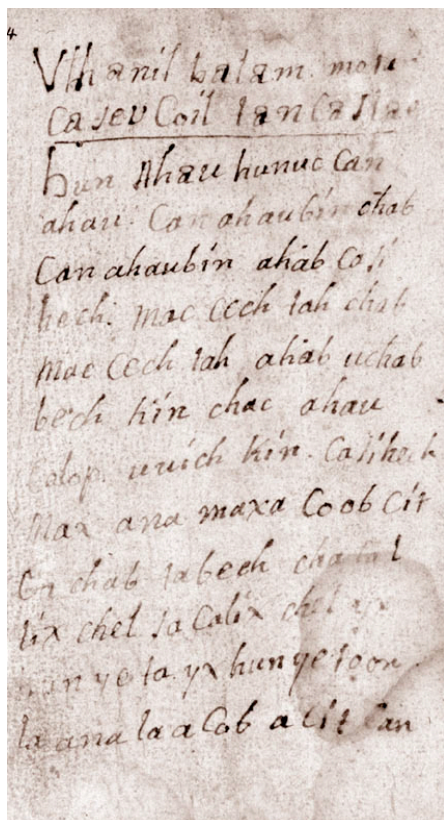 4
Vthanil balam mo
Caseu Coil tanCaslae
hun Ahau hunuc Can
ahau. Can ahaubin chab
Can ahaubin akab Casi
hech. Mac Cech tah chab
Mac Cech tah akab uchab
bech Kin chac ahau
Colop uuich Kin. Casihech
Max ana maxa Coob Cit
Ca chab tabech chacal
tix chel saCalix chel yx
hun ye ta yx hun ye toon
la ana la a Cob a Cit Can